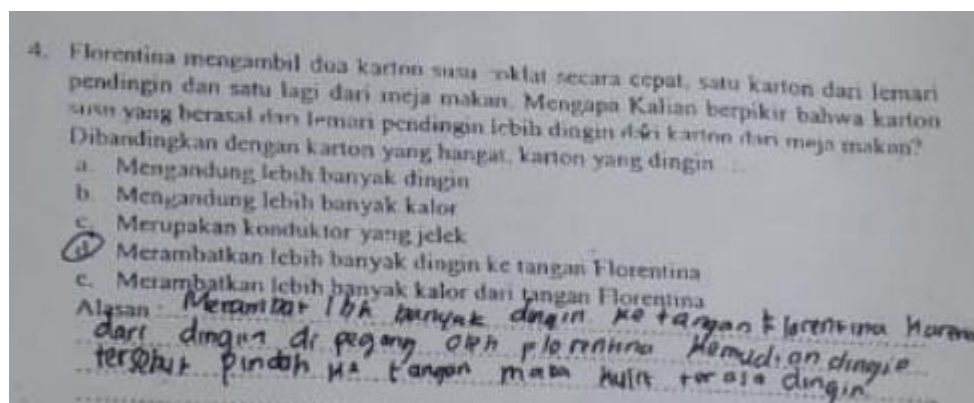 4. Florentina mengambil dua karton susu coklat secara cepat, satu karton dari lemari
pendingin dan satu lagi dari meja makan. Mengapa Kalian berpikir bahwa karton
susu yang berasal dari lemari pendingin lebih dingin dari karton dari meja makan?
Dibandingkan dengan karton yang hangat, karton yang dingin ...
a. Mengandung lebih banyak dingin
b. Mengandung lebih banyak kalor
c. Merupakan konduktor yang jelek
d. Merambatkan lebih banyak dingin ke tangan Florentina
e. Merambatkan lebih banyak kalor dari tangan Florentina
Alasan : Merambat lbh banyak dingin ke tangan Florentina karena
dari dingin di pegang oleh Florentina kemudian dingin
tersebut pindah ke tangan maka kulit terasa dingin